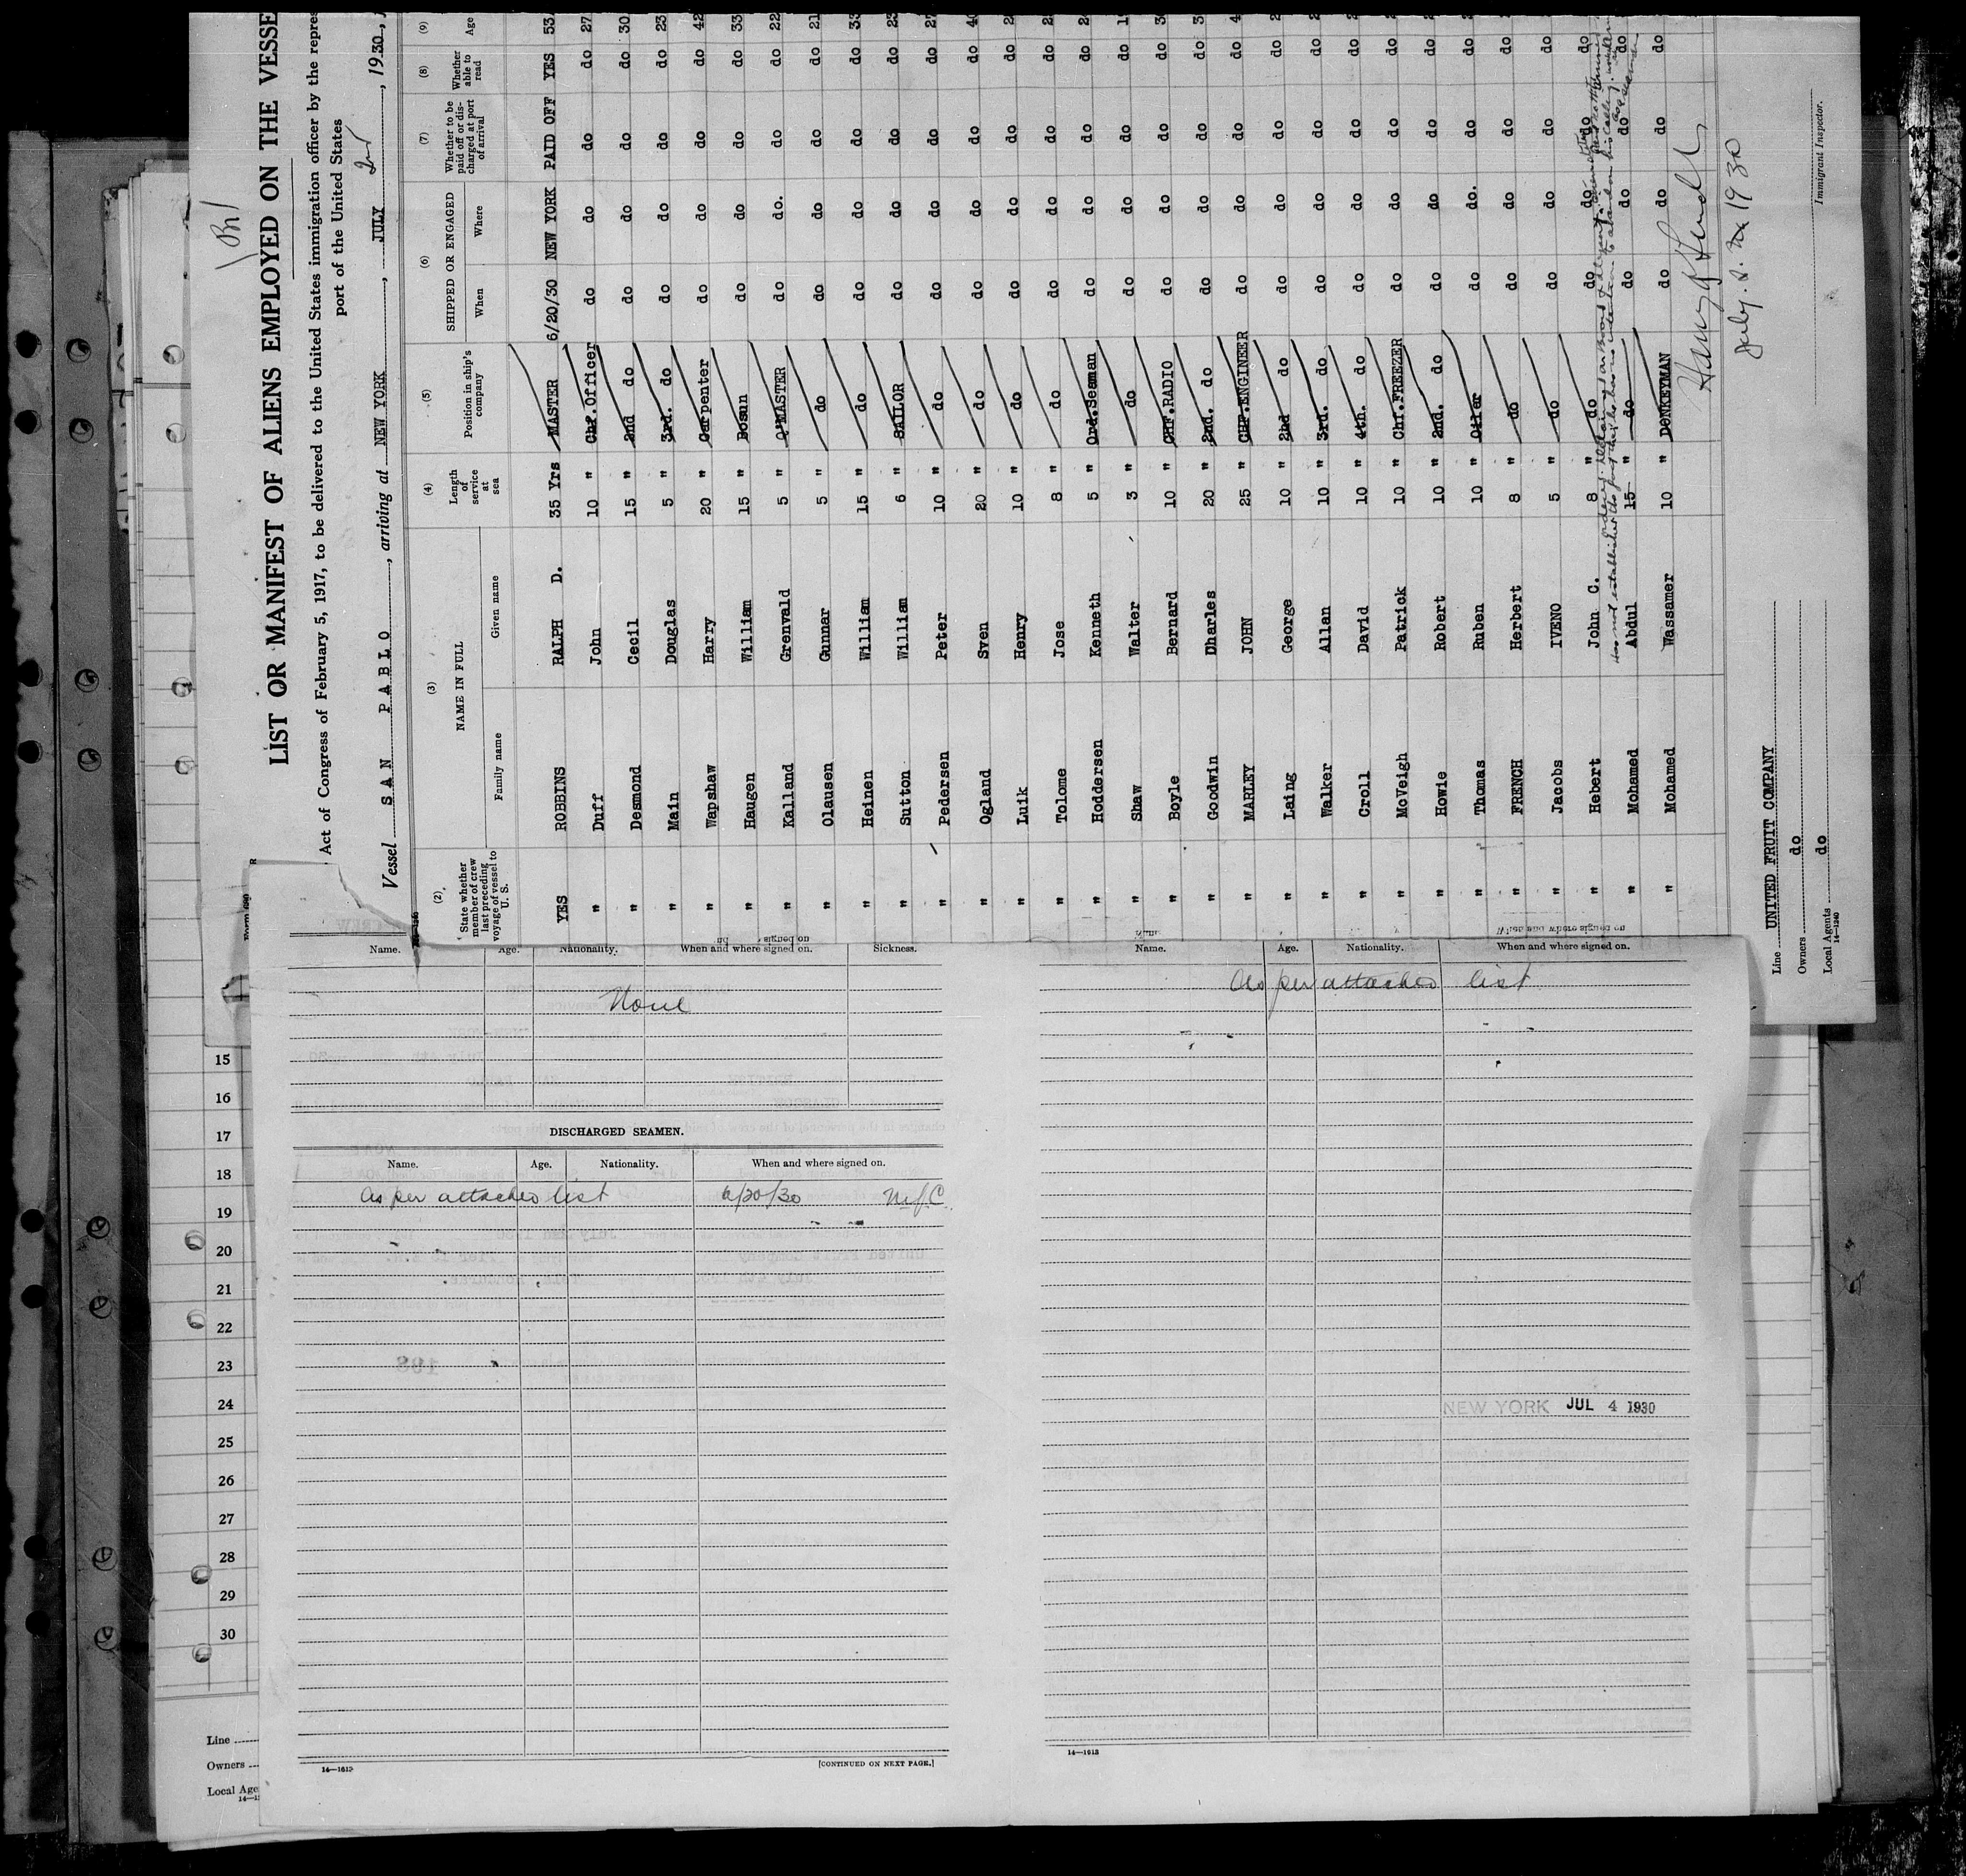 Br
LIST OR MANIFEST OF ALIENS EMPLOYED ON THE VESSE
Act of Congress of February 5, 1917, to be delivered to the United States immigration officer by the repres
port of the United States
Vessel SAN PABLO, arriving at NEW YORK, JULY 2nd, 1930,
(2) (3) (4) (5) (6) (7) (8) (9)
State whether member of crew last preceding voyage of vessel to U. S. NAME IN FULL Family name Given name Length of service at sea Position in ship's company SHIPPED OR ENGAGED When Where Whether to be paid off or discharged at port of arrival Whether able to read Age
YES ROBBINS RALPH D. 35 Yrs MASTER 6/20/30 NEW YORK PAID OFF YES 53
" Duff John 10 " Chf.Officer do do do do 27
" Desmond Cecil 15 " 2nd do do do do do 30
" Main Douglas 5 " 3rd. do do do do do 23
" Wapshaw Harry 20 " Carpenter do do do do 42
" Haugen William 15 " Bosun do do do do 33
" Kalland Grenvald 5 " Q'MASTER do do. do do 22
" Olausen Gunnar 5 " do do do do do 21
" Heinen William 15 " do do do do do 3
" Sutton William 6 " SAILOR do do do do 2
" Pedersen Peter 10 " do do do do do 2
" Ogland Sven 20 " do do do do do 4
" Luik Henry 10 " do do do do do 2
" Tolome Jose 8 " do do do do do 2
" Hoddersen Kenneth 5 " Ord.Seaman do do do do 2
" Shaw Walter 3 " do do do do do 1
" Boyle Bernard 10 " CHF.RADIO do do do do 3
" Goodwin Dharles 20 " 2nd. do do do do do 3
" MARLEY JOHN 25 " CHF.ENGINEER do do do do 4
" Laing George 10 " 2nd do do do do do 2
" Walker Allan 10 " 3rd. do do do do do 2
" Croll David 10 " 4th. do do do do do 2
" McVeigh Patrick 10 " Chf.FREEZER do do do do 2
" Howie Robert 10 " 2nd. do do do do do 2
" Thomas Ruben 10 " Oiler do do. do do 2
" FRENCH Herbert 8 " do do do do do
" Jacobs IVENO 5 " do do do do do
" Hebert John C. 8 " do do do do do
has not established the fact that he has no intention to abandon his calling.
" Mohamed Abdul 15 " do do do do do
" Mohamed Wassamer 10 " DONKEYMAN do do do do
July 2 1930
Line UNITED FRUIT COMPANY
Owners do
Local Agents do
14—1240
Immigrant Inspector.
Name. Age. Nationality. When and where signed on. Sickness.
None
DISCHARGED SEAMEN.
Name. Age. Nationality. When and where signed on.
As per attached list 6/20/30 N.Y.C.
14—1613
[CONTINUED ON NEXT PAGE.]
Name. Age. Nationality. When and where signed on.
As per attached list
NEW YORK JUL 4 1930
14—1613
15
16
17
18
19
20
21
22
23
24
25
26
27
28
29
30
Line
Owners
Local Age